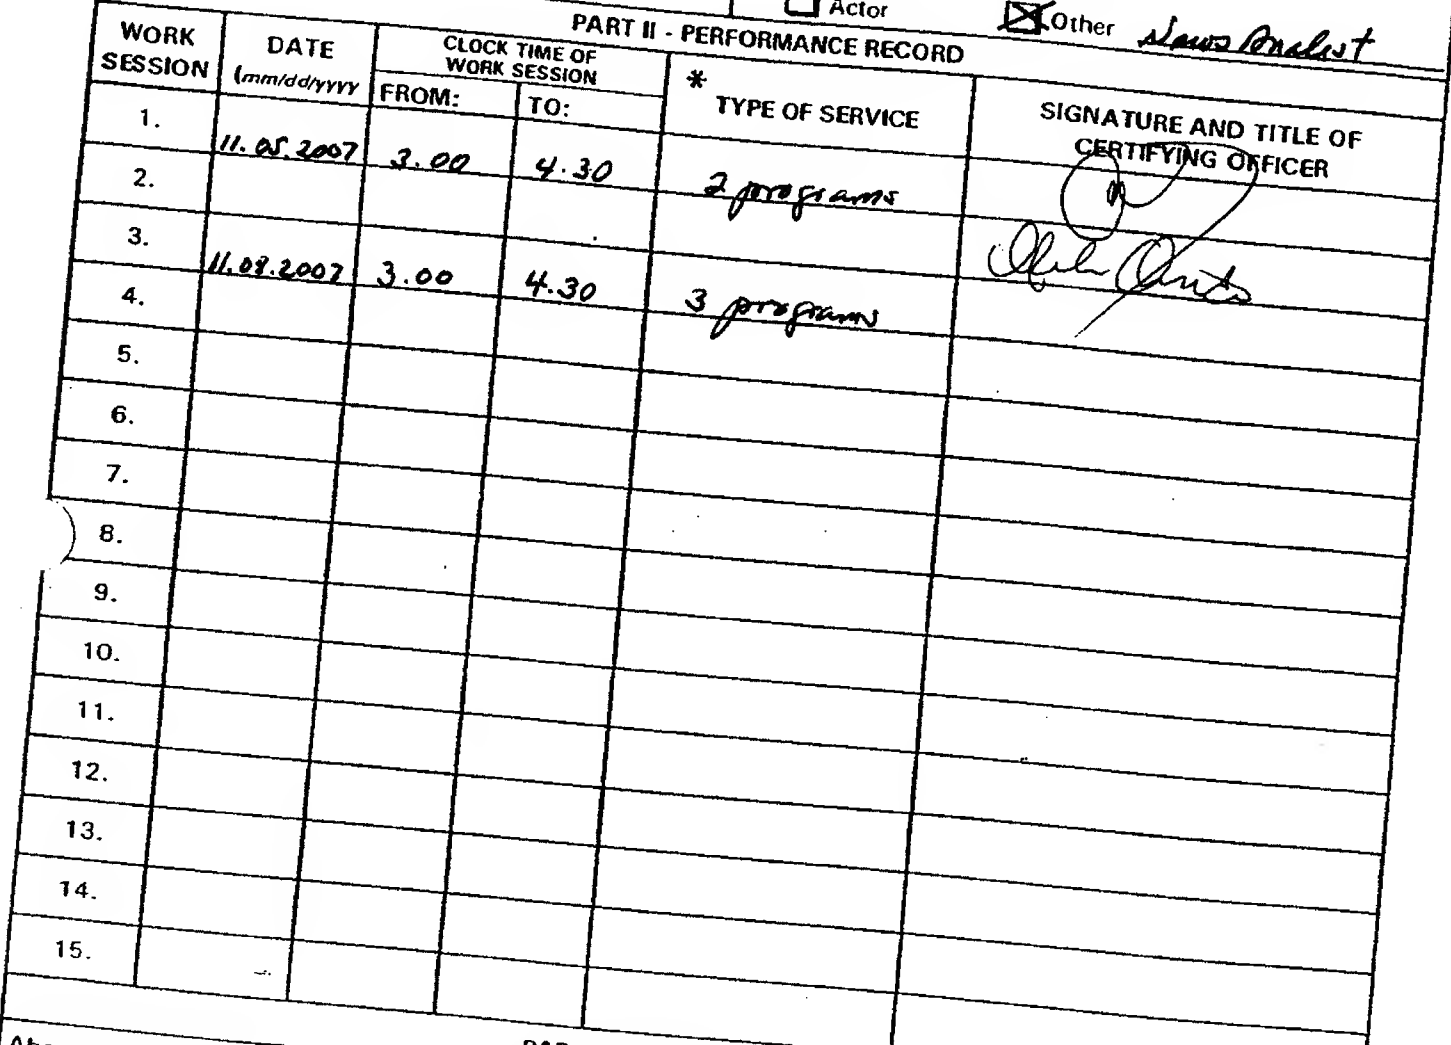 Actor Other News Analyst
PART II - PERFORMANCE RECORD
WORK SESSION
DATE (mm/dd/yyyy
CLOCK TIME OF WORK SESSION
FROM:
TO:
*
TYPE OF SERVICE
SIGNATURE AND TITLE OF CERTIFYING OFFICER
1. 11.05.2007 3.00 4.30 2 programs
2.
3. 11.08.2007 3.00 4.30 3 programs
4.
5.
6.
7.
8.
9.
10.
11.
12.
13.
14.
15.